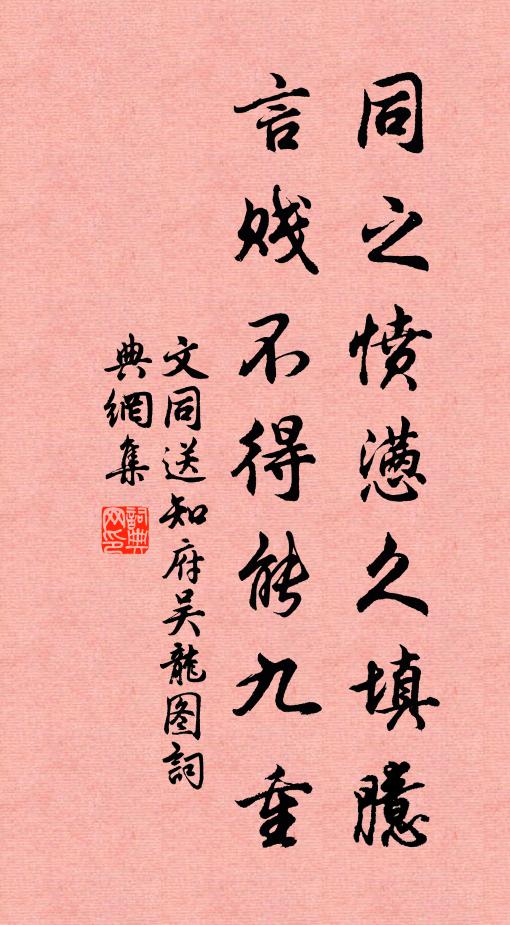 同之憤懣久填臆
言賤不得能九重
文同送知府吴龍图詞
典網集
詞典
网印